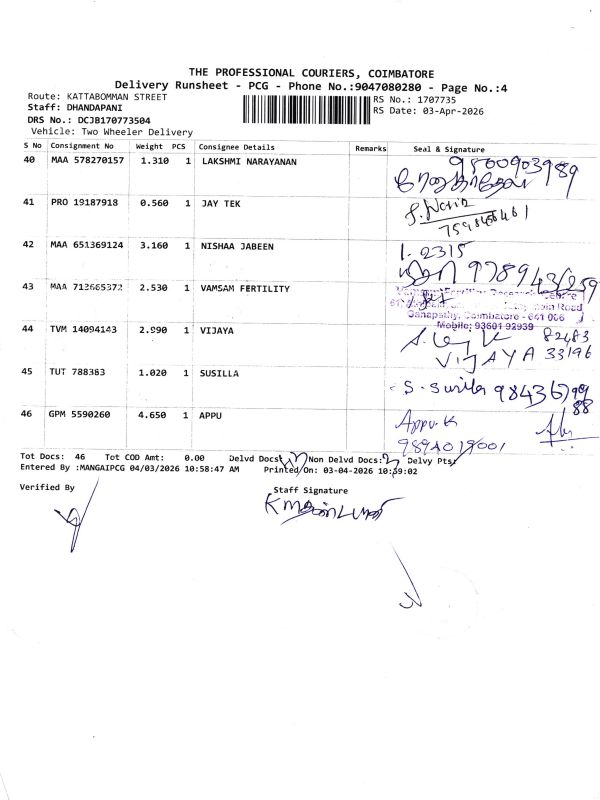 THE PROFESSIONAL COURIERS, COIMBATORE
Delivery Runsheet - PCG - Phone No.:9047080280 - Page No.:4
Route: KATTABOMMAN STREET
RS No.: 1707735
Staff: DHANDAPANI
RS Date: 03-Apr-2026
DRS No.: DCJB170773504
Vehicle: Two Wheeler Delivery
S No Consignment No Weight PCS Consignee Details Remarks Seal & Signature
40 MAA 578270157 1.310 1 LAKSHMI NARAYANAN
41 PRO 19187918 0.560 1 JAY TEK
42 MAA 651369124 3.160 1 NISHAA JABEEN
1. 2315
43 MAA 713665372 2.530 1 VAMSAM FERTILITY
Ganapathy, Coimbatore - 641 006
Mobile: 93601 92939
44 TVM 14094143 2.990 1 VIJAYA
82483
VIJAYA 33196
45 TUT 788383 1.020 1 SUSILLA
46 GPM 5590260 4.650 1 APPU
Appu.K
Tot Docs: 46 Tot COD Amt: 0.00 Delvd Docs: Non Delvd Docs: Delvy Pts:
Entered By :MANGAIPCG 04/03/2026 10:58:47 AM Printed On: 03-04-2026 10:59:02
Verified By
Staff Signature